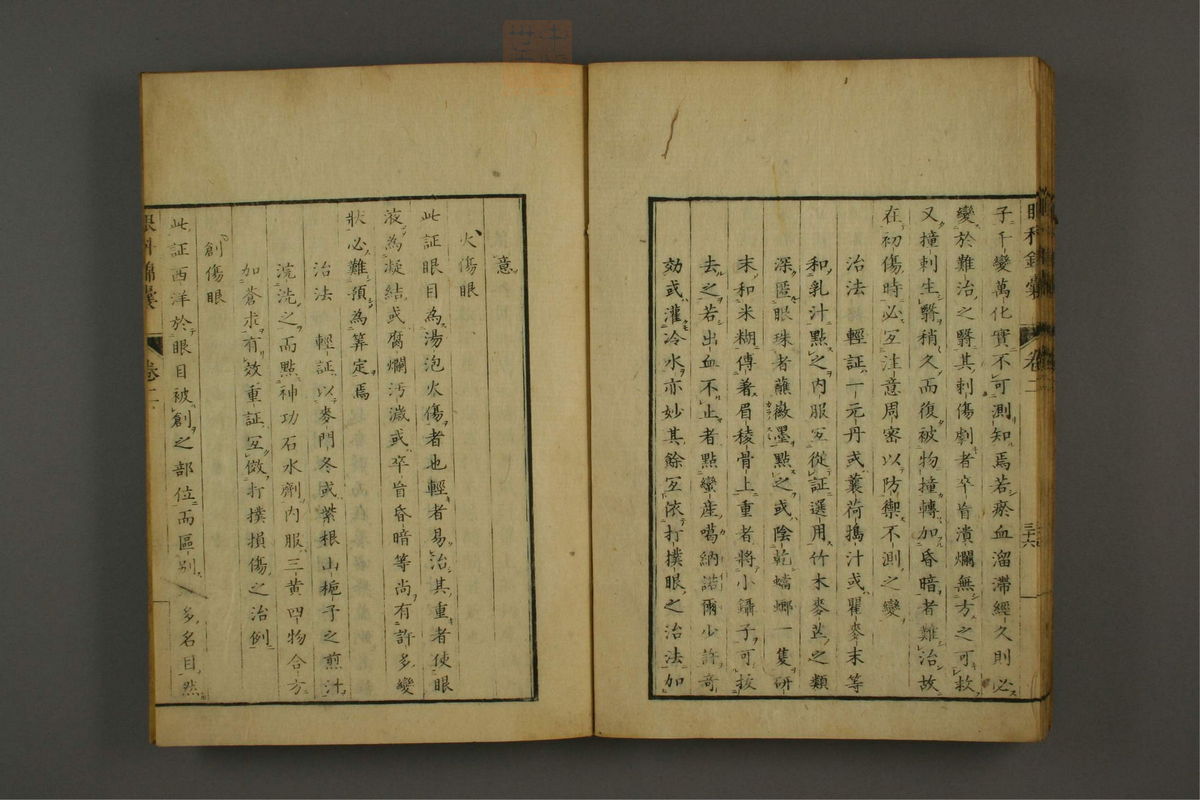 眼科錦囊 卷二 三十六
子千變萬化實不可測知焉若瘀血溜滯經久則必
變於難治之翳其刺傷劇者卒皆潰爛無方之可救
又撞刺生翳稍久而復被物撞轉加昏暗者難治故
在初傷時必宜注意周密以防禦不測之變
治法 輕証一元丹或蘘荷搗汁或瞿麥末等
和乳汁點之內服宜從証選用竹木麥芒之類
深匿眼珠者蘸徽墨點之或陰乾蠐螂一隻研
末和米糊傅著眉稜骨上重者將小鑷子可拔
去之若出血不止者點蠻產噶納諾爾少許奇
効或灌冷水亦妙其餘宜依打撲眼之治法加
意
火傷眼
此証眼目為湯泡火傷者也輕者易治其重者使眼
液為凝結或腐爛汚濊或卒盲昏暗等尚有許多變
狀必難預為筭定焉
治法 輕証以麥門冬或紫根山梔子之煎汁
洗洗之而點神功石水劑內服三黃四物合方
加蒼朮有效重証宜倣打撲損傷之治例
創傷眼
此証西洋於眼目被創之部位而區別多名目然
眼科錦囊 卷二